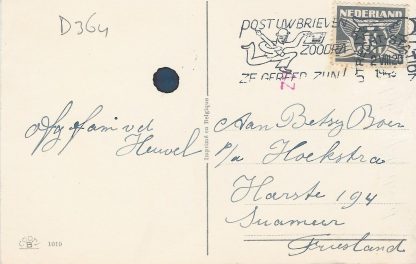 D364
POST UW BRIEVEN
ZOODRA
ZE GEREED ZIJN!
NEDERLAND
Afz fam v d
Heuvel
Aan Betsy Boer
p/a Hoekstra
Harste 194
Suameer
Friesland
Imprimé en Belgique
1010